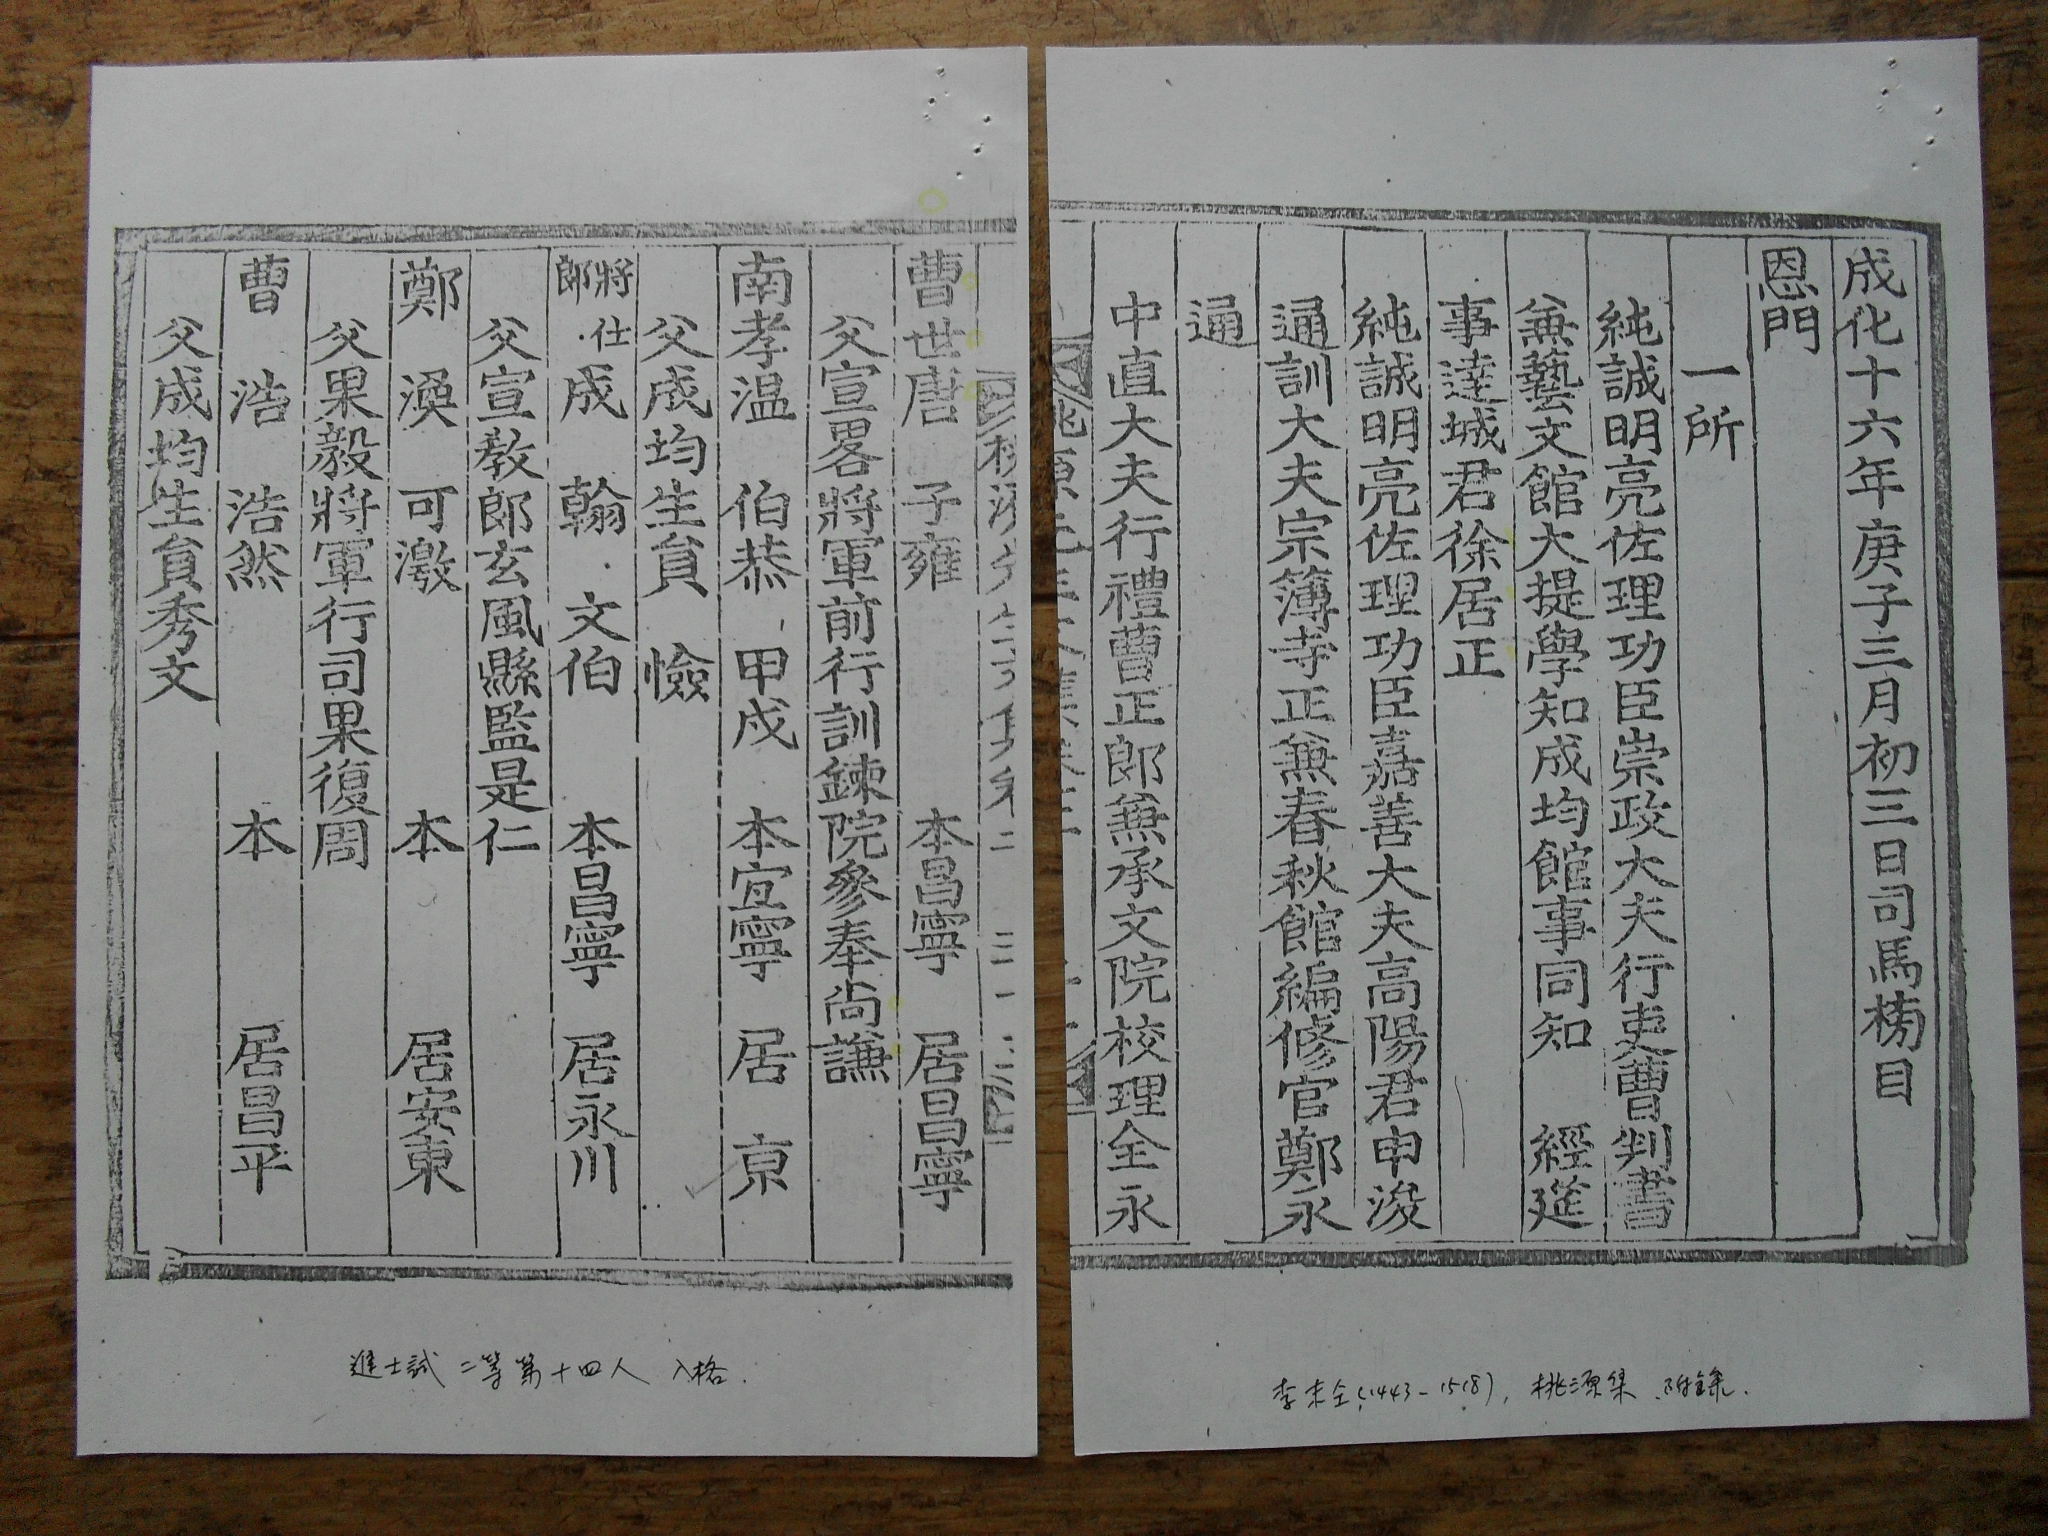 成化十六年庚子三月初三日司馬榜目
恩門
一所
純誠明亮佐理功臣崇政大夫行吏曹判書
兼藝文館大提學知成均館事同知 經筵
事達城君徐居正
純誠明亮佐理功臣嘉善大夫高陽君申浚
通訓大夫宗簿寺正兼春秋館編修官鄭永
通
中直大夫行禮曹正郎兼承文院校理金永
李末仝(1443-1518), 桃源集 附錄.
曹世唐 子雍 本昌寧 居昌寧
父宣畧將軍前行訓鍊院參奉尙謙
南孝温 伯恭 甲戌 本宜寧 居京
父成均生員 憸
將仕郎 成 翰 文伯 本昌寧 居永川
父宣教郎玄風縣監是仁
鄭 渙 可激 本 居安東
父果毅將軍行司果復周
曹 浩 浩然 本 居昌平
父成均生員秀文
進士試 二等 第十四人 入格.